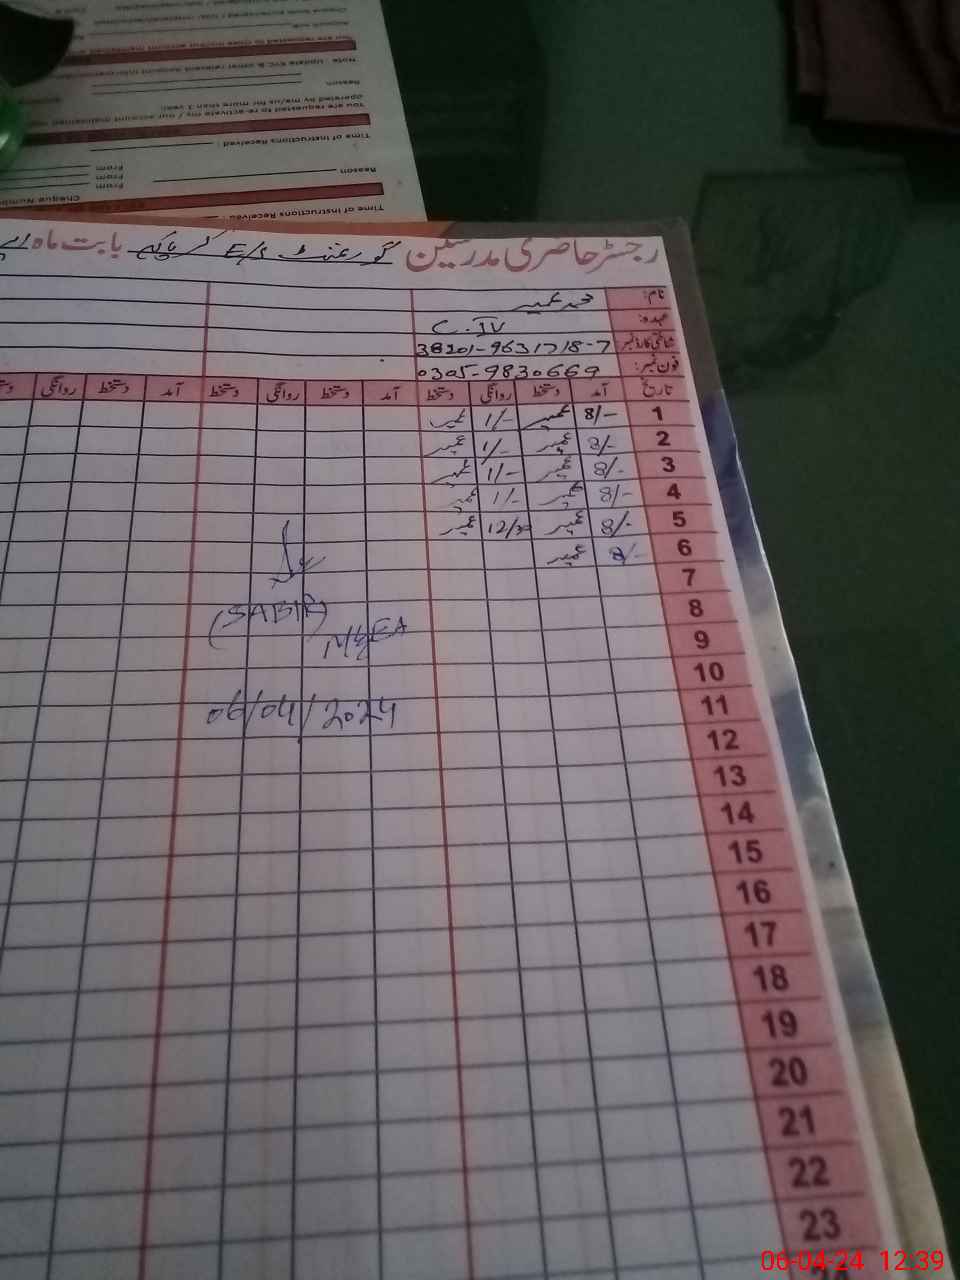 Time of Instructions Received :
Cheque Number
From
From
From
Reason
Time of Instructions Received :
You are requested to re-activate my / our account maintained
operated by me/us for more than 1 year.
Reason
Note : Update KYC & other relevant Account Information
You are requested to close my/our account maintained
رجسٹر حاضری مدرسین گورنمنٹ E/S بابت ماہ
نام: محمد عمیر
عہدہ: C.IV
شناختی کارڈ نمبر: 38201-9631718-7
فون نمبر: 0305-9830669
تاریخ آمد دستخط روانگی دستخط آمد دستخط روانگی دستخط آمد دستخط روانگی
1 8/- عمیر 1/- عمیر
2 8/- عمیر 1/- عمیر
3 8/- عمیر 1/- عمیر
4 8/- عمیر 1/- عمیر
5 8/- عمیر 12/30 عمیر
6 8/- عمیر
7
8
(SABIR)
9
MEEA
10
11
06/04/2024
12
13
14
15
16
17
18
19
20
21
22
23
06-04-24 12:39